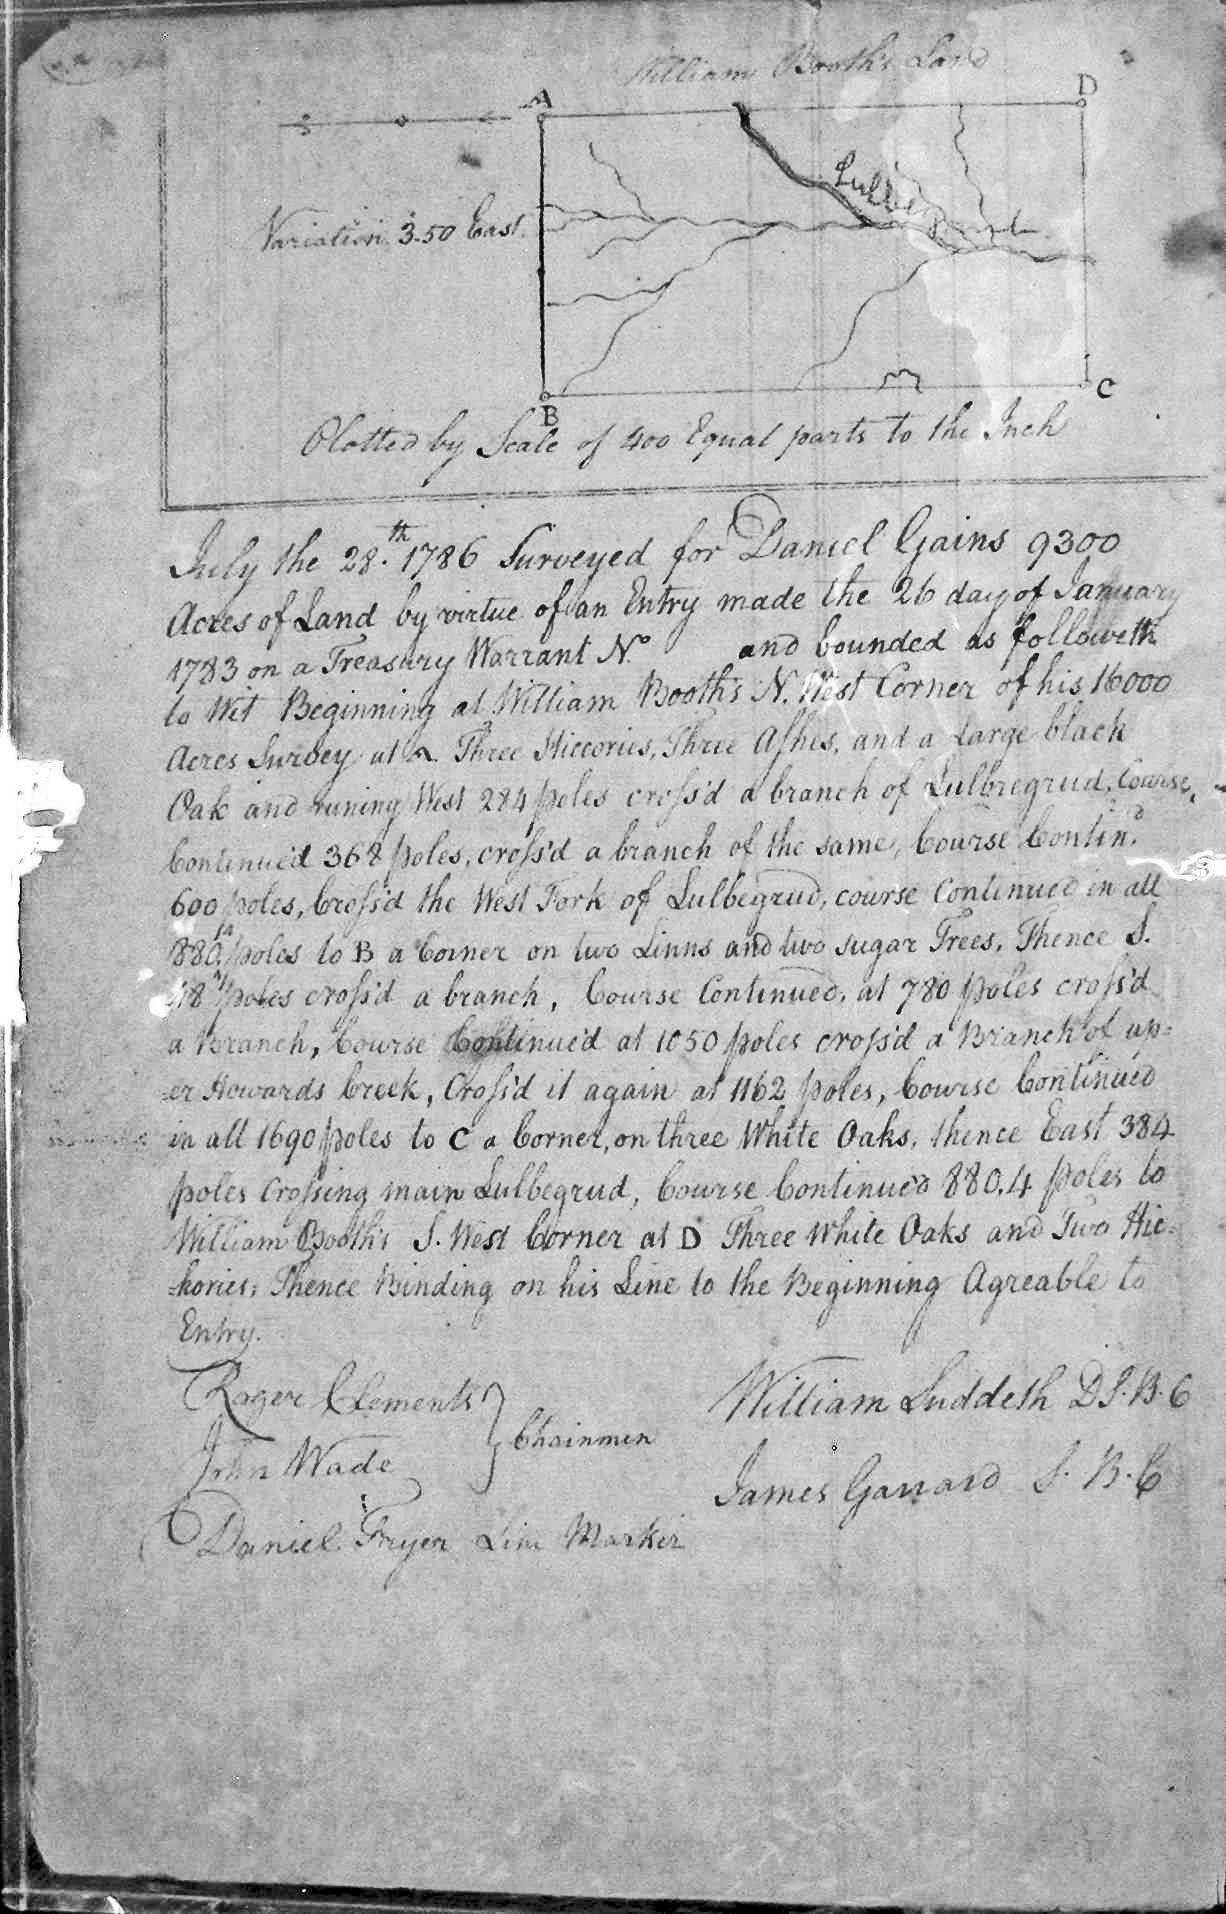 William Booth's Land
A
D
Lulbegrud
Variation 3.50 East
B
C
Plotted by Scale of 400 Equal parts to the Inch
July the 28.th 1786 Surveyed for Daniel Gains 9300
Acres of Land by virtue of an Entry made the 26 day of January
1783 on a Treasury Warrant No and bounded as followeth
to Wit Beginning at William Booth's N. West Corner of his 16000
Acres Survey at A Three Hiccories, Three Ashes, and a large black
Oak and runing West 284 poles cross'd a branch of Lulbregrud, Course,
Continue'd 368 poles, cross'd a branch of the same, Course Contin.d
600 poles, Cross'd the West Fork of Lulbegrud, course Continued in all
880 poles to B a Corner on two Linns and two sugar Trees, Thence S.
poles cross'd a branch, Course Continued, at 780 poles cross'd
a Branch, Course Continue'd at 1050 poles cross'd a Branch of up=
=er Howards Creek, Cross'd it again at 1162 poles, Course Continued
in all 1690 poles to C a Corner, on three White Oaks, thence East 384
poles crossing main Lulbegrud, Course Continue'd 880.4 poles to
William Booth's S. West Corner at D Three White Oaks and Two Hic=
=kories, Thence Binding on his Line to the Beginning Agreable to
Entry.
Roger Clements
John Wade
Chainmen
Daniel Fryer Line Marker
William Suddeth D.S.B.C
James Garrard S. B. C